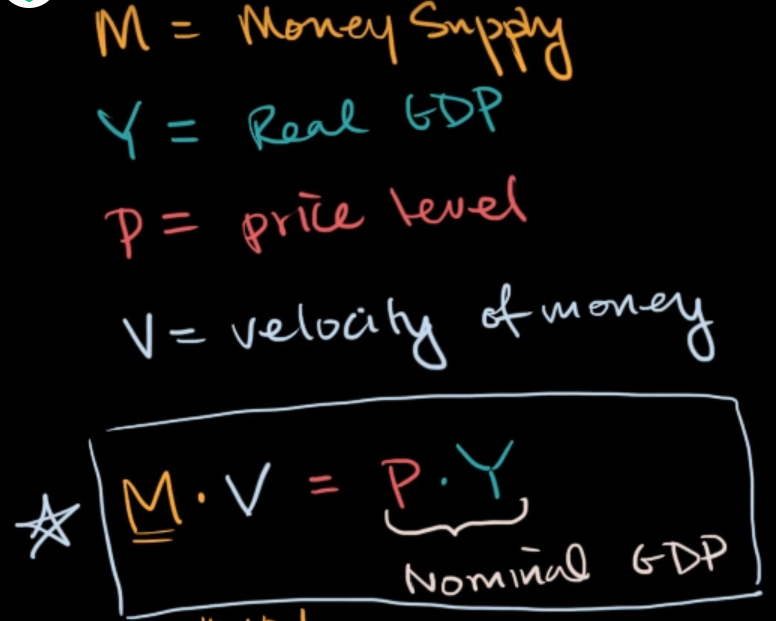 M = Money Supply
Y = Real GDP
P = price level
V = velocity of money
M · V = P · Y
Nominal GDP